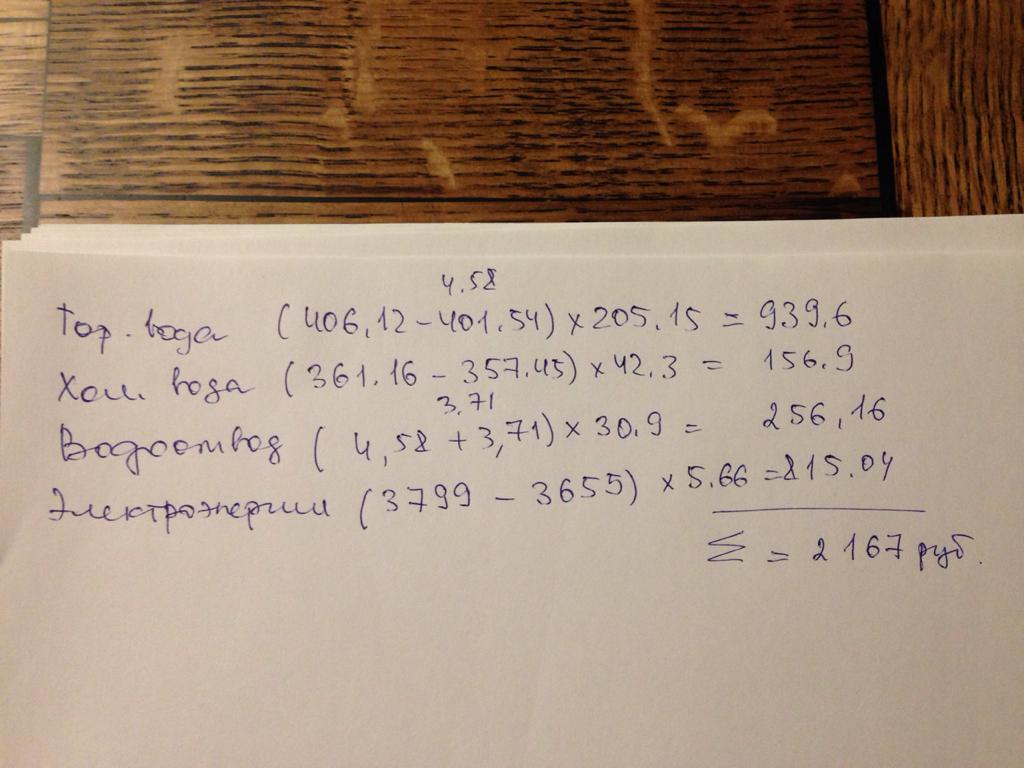 4.58
Гор. вода (406,12 - 401.54) × 205.15 = 939.6
Хол. вода (361.16 - 357.45) × 42.3 = 156.9
3,71
Водоотвод (4,58 + 3,71) × 30.9 = 256,16
Электроэнергия (3799 - 3655) × 5.66 = 815.04
Σ = 2 167 руб.